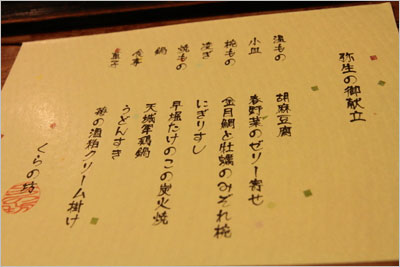 弥生の御献立
もの 胡麻豆腐
小皿 春野菜のゼリー寄せ
椀もの 金目鯛と牡蠣のみぞれ椀
凌ぎ にぎりすし
焼もの 早堀たけのこの炭火焼
鍋 天城軍鶏鍋
食事 うどんすき
苺の酒粕クリーム掛け
くらの坊